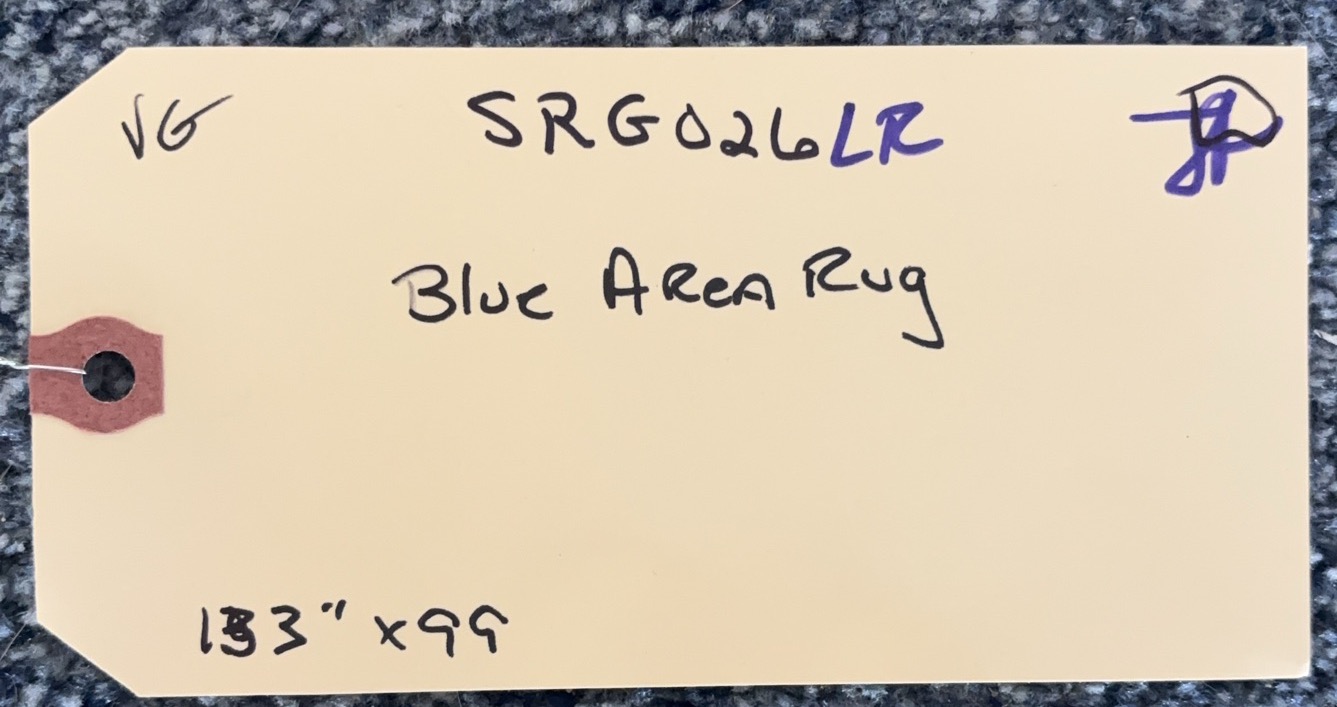 VG
SRG026LR
Blue Area Rug
x99